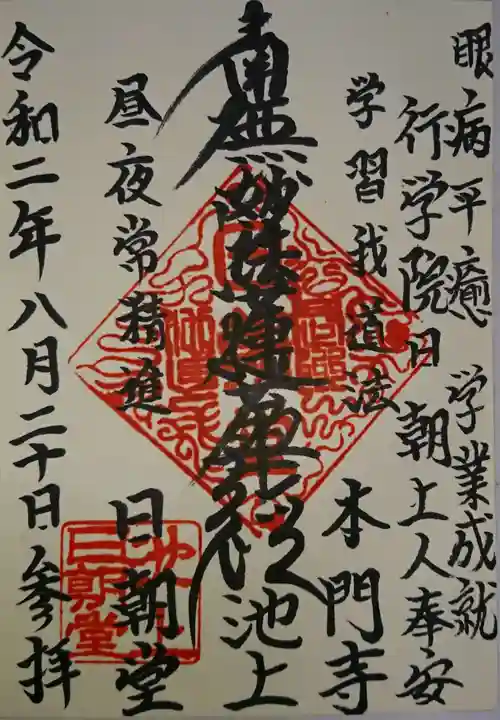 眼病平癒 学業成就
行学院日朝上人奉安
学習我道法
本門寺
南無妙法蓮華経
池上
昼夜常精進
日朝堂
令和二年八月二十日参拝
日朝堂